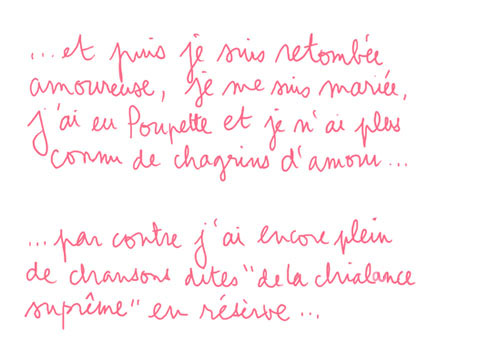 ...et puis je suis retombée
amoureuse, je me suis mariée,
j'ai eu Poupette et je n'ai plus
connu de chagrins d'amour...
...par contre j'ai encore plein
de chansons dites "de la chialance
suprême" en réserve...